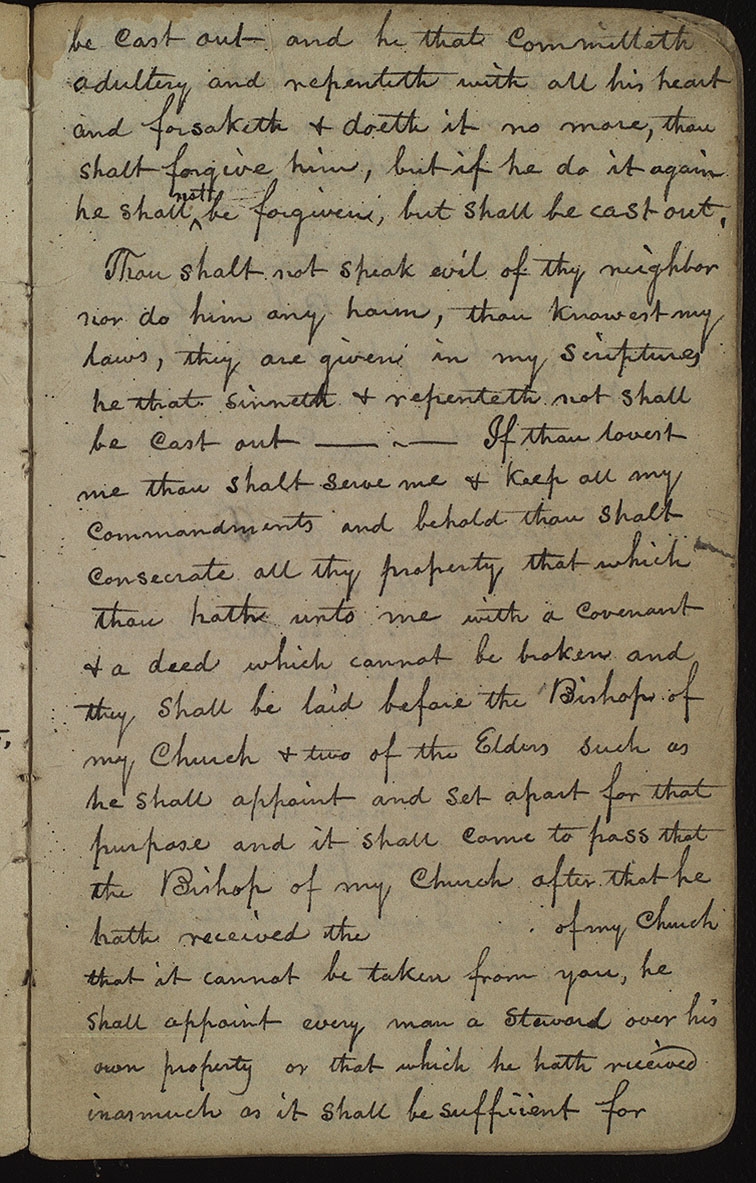 be cast out and he that committeth
adultery and repenteth with all his heart
and forsaketh & doeth it no more, thou
shalt forgive him, but if he do it again
he shall not be forgiven, but shall be cast out,
Thou shalt not speak evil of thy neighbor
nor do him any harm, thou knowest my
laws, they are given in my Scriptures
he that sinneth & repenteth not shall
be cast out — If thou lovest
me thou shalt serve me & keep all my
commandments and behold thou shalt
consecrate all thy property that which
thou hath unto me with a covenant
& a deed which cannot be broken and
they shall be laid before the Bishop of
my Church & two of the Elders such as
he shall appoint and set apart for that
purpose and it shall come to pass that
the Bishop of my Church after that he
hath received the of my Church
that it cannot be taken from you, he
shall appoint every man a Steward over his
own property or that which he hath received
inasmuch as it shall be sufficient for